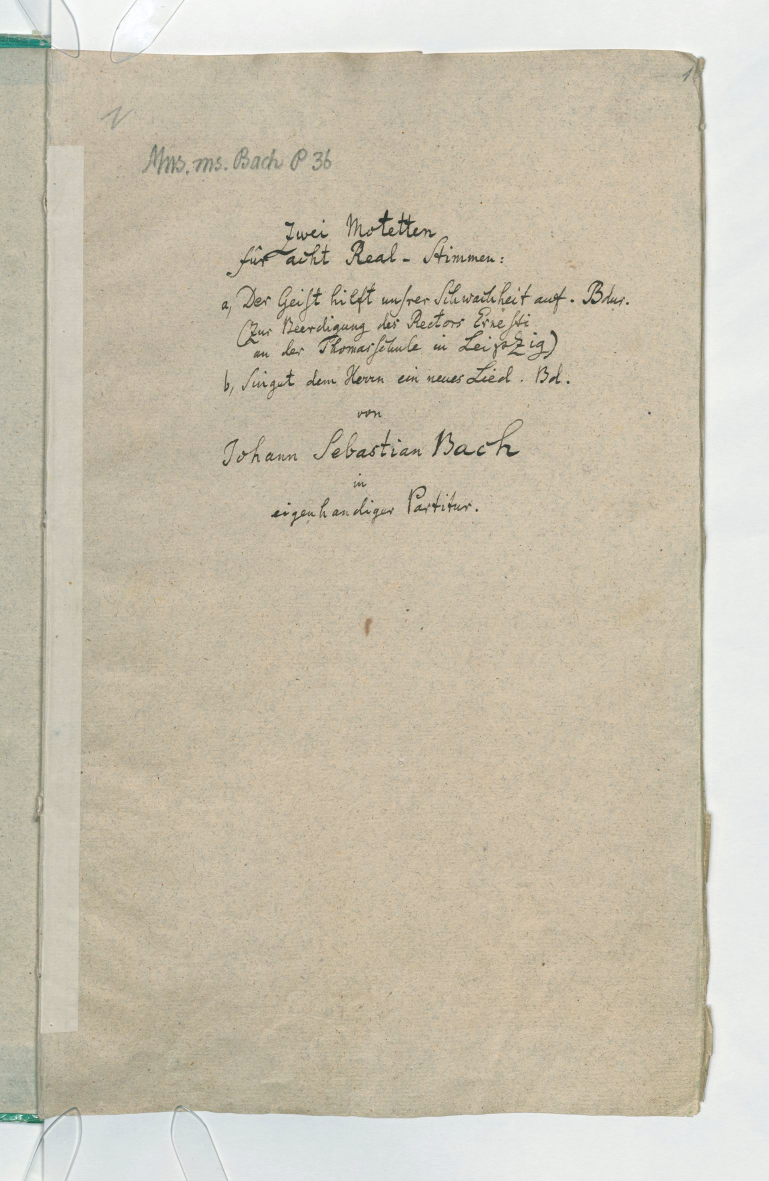 1
Mus. ms. Bach P 36
Zwei Motetten
für acht Real-Stimmen:
a, Der Geist hilft unsrer Schwachheit auf. Bdur.
(Zur Beerdigung des Rectors Ernesti
an der Thomasschule in Leipzig)
b, Singet dem Herrn ein neues Lied. Bd.
von
Johann Sebastian Bach
in
eigenhändiger Partitur.